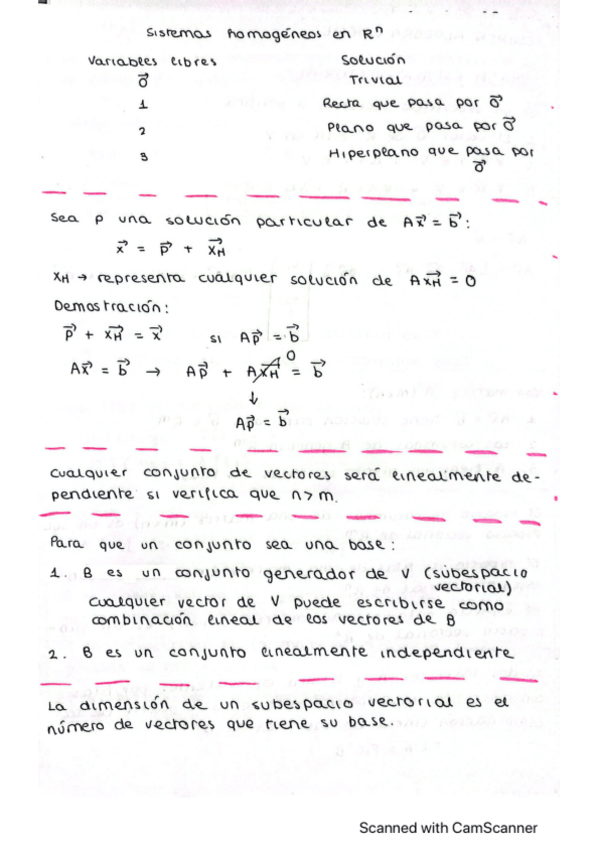 Sistemas homogéneos en Rⁿ
Variables libres Solución
0⃗ Trivial
1 Recta que pasa por 0⃗
2 Plano que pasa por 0⃗
3 Hiperplano que pasa por
0⃗
Sea p una solución particular de Ax⃗ = b⃗:
x⃗ = p⃗ + x⃗_H
x_H → representa cualquier solución de Ax⃗_H = 0
Demostración:
p⃗ + x⃗_H = x⃗ si Ap⃗ = b⃗
Ax⃗ = b⃗ → Ap⃗ + Ax⃗_H = b⃗
0
↓
Ap⃗ = b⃗
Cualquier conjunto de vectores será linealmente de-
pendiente si verifica que n > m.
Para que un conjunto sea una base:
1. B es un conjunto generador de V (subespacio
vectorial)
Cualquier vector de V puede escribirse como
combinación lineal de los vectores de B
2. B es un conjunto linealmente independiente
La dimensión de un subespacio vectorial es el
número de vectores que tiene su base.
Scanned with CamScanner